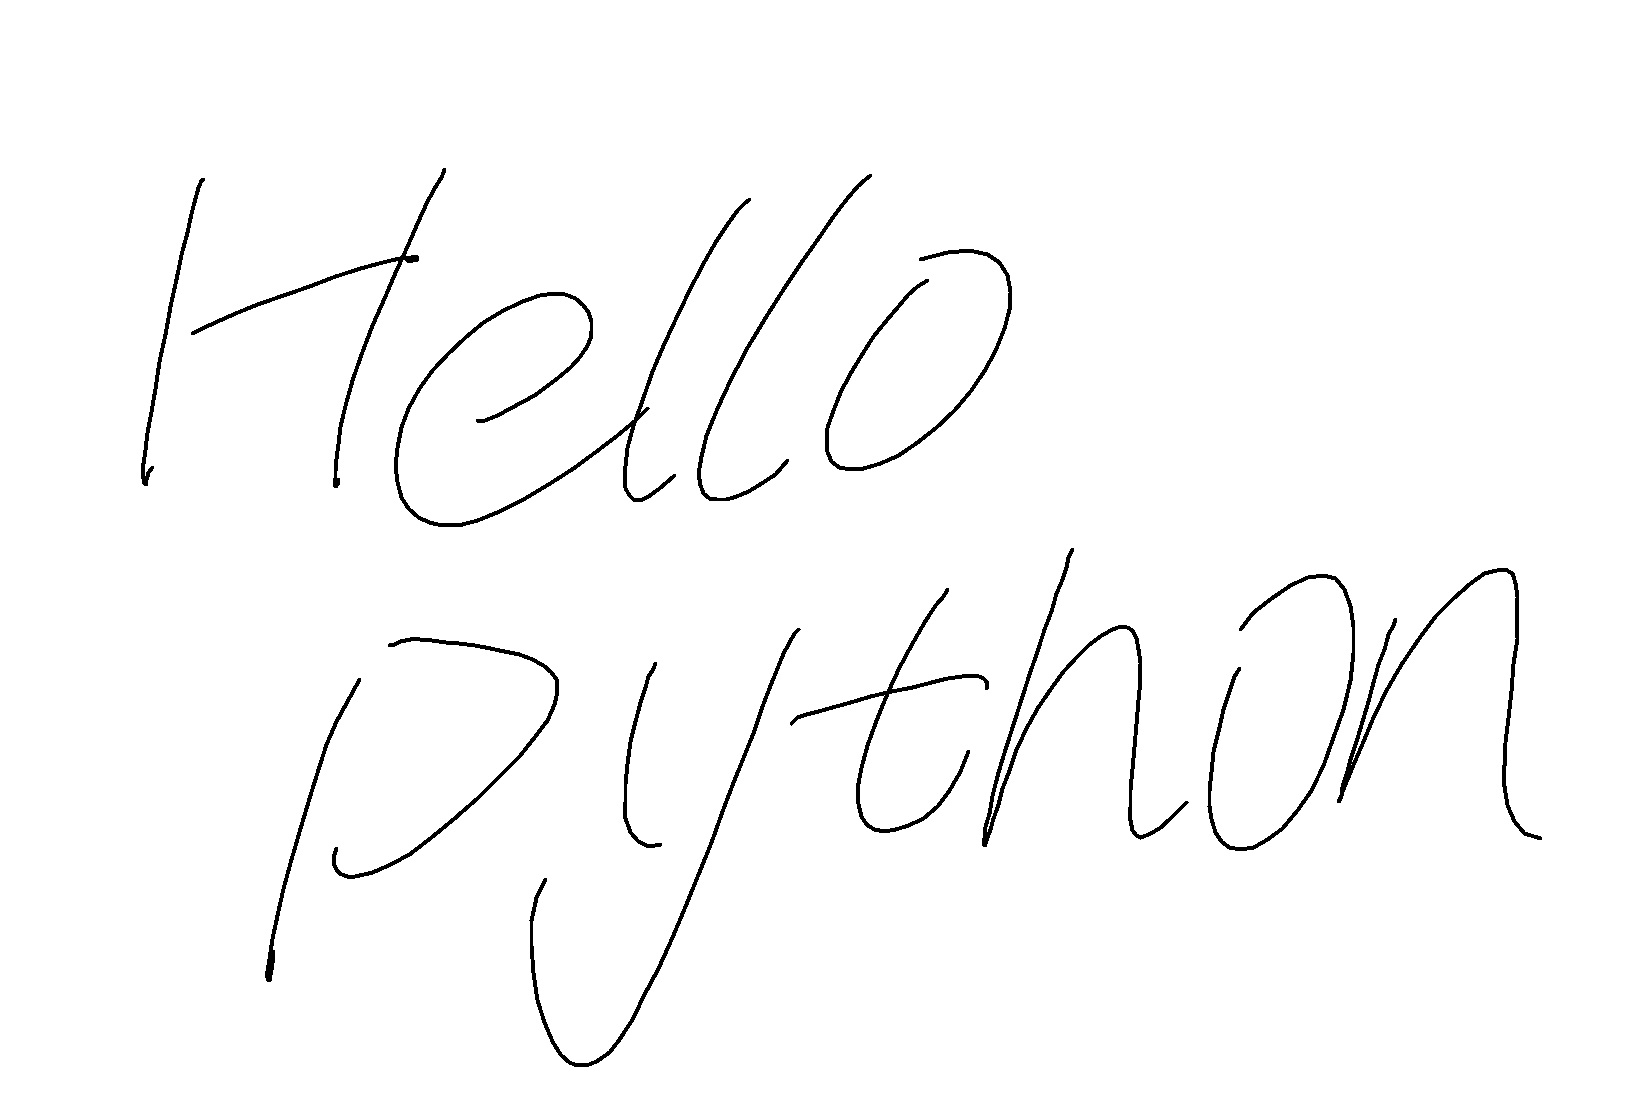 Hello
python